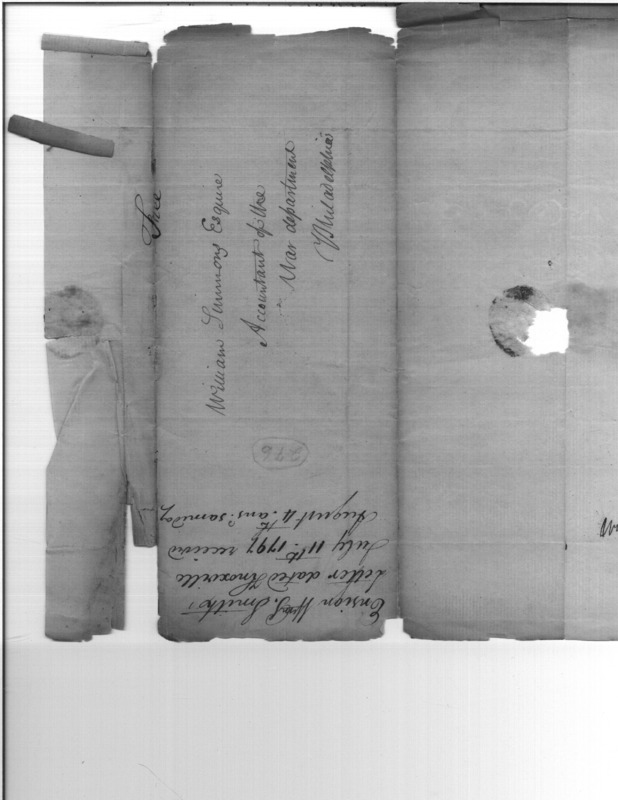 Free
William Simmons Esquire
Accountant of the
War department
Philadelphia
276
Ensign Wm. S. Smith's
Letter dated Knoxville
July 11th. 1797 received
August 4th. ans'd. same day